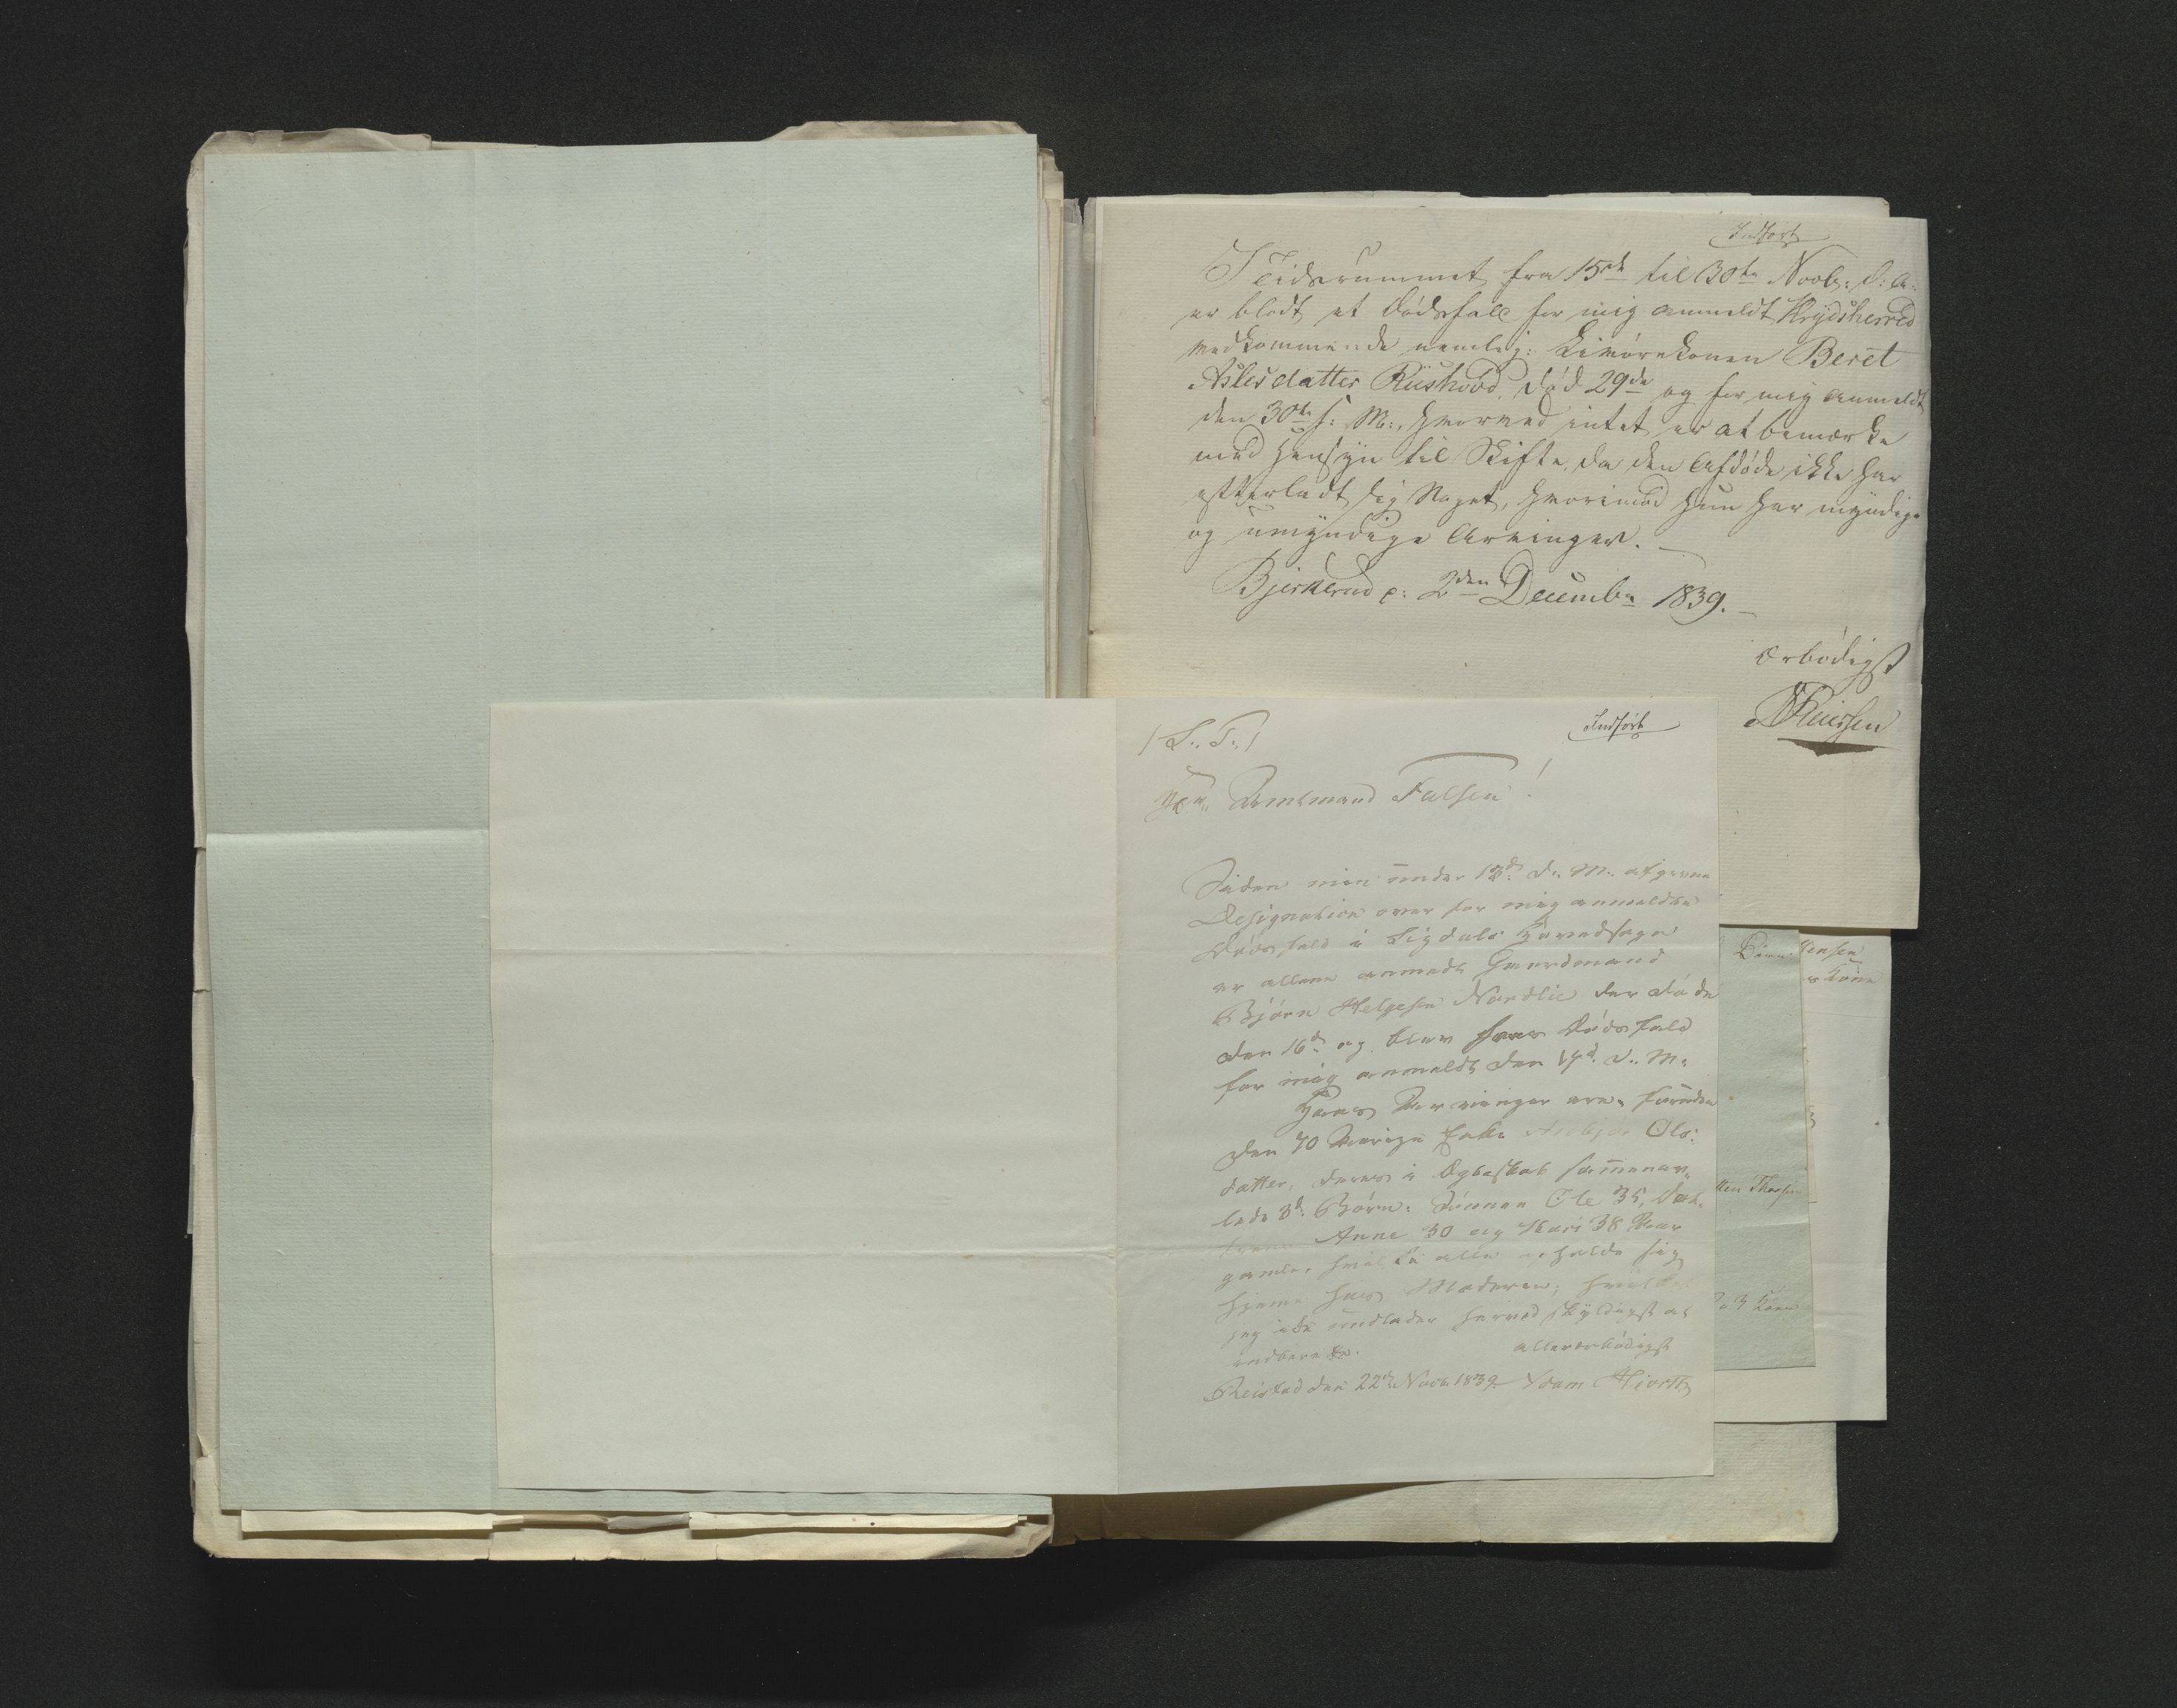 Indført
I Tidsrummet fra 15de til 30te Novbr: d: A:
er blodt et Dødsfall for mig anmeldt Krydsherred
vedkommende nemlig: Livørekonen Beret
Aslesdatter Riishovd, død 29de og for mig anmeldt
den 30te s: M:, hvorved intet er at bemærke
med Hensyn til Skifte, da den Afdøde ikke har
efterladt sig Noget, hvorimod hun har myndige
og umyndige Arvinger.
Bjerkerud d: 2den Decembr 1839.
Ærbødigst
Indført
/S. T./
Hr. Amtmand Falsen!
Siden min under 13de d. M. afgivne
Designation over for mig anmeldte
Dødsfald i Sigdals Hovedsogn
er allene anmeldt Gaardmand
Bjørn Helgesen Nordlie der døde
den 16de og blev hans Dødsfald
for mig anmeldt den 17d. d. M.
Hans Arvinger ere, foruden
den 70 Aarige Enke Ols:
datter, deres i Ægteskab sammenav¬
lede 3de Børn: Sønnen Ole 35, Døt¬
Anne 30 og Kari 38 Aar
gamle, hvilke alle opholde sig
hjemme hos Moderen; hvilket
jeg ikke undlader herved skyldigst at
indberette.
allerærbødigst
Reistad den 22de Novbr 1839 Adam Hiorth
Børn:
3 Børn